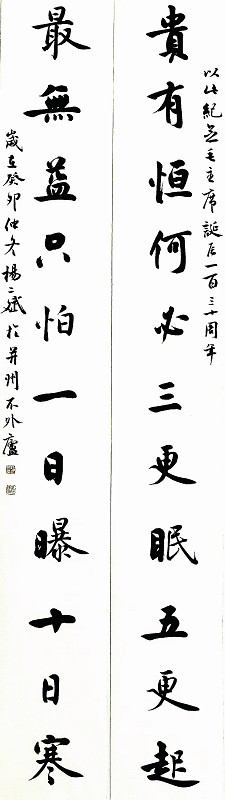 以此紀念毛主席誕辰一百三十周年
貴有恒何必三更眠五更起
最無益只怕一日曝十日寒
歲在癸卯仲冬楊二斌於并州不外廬